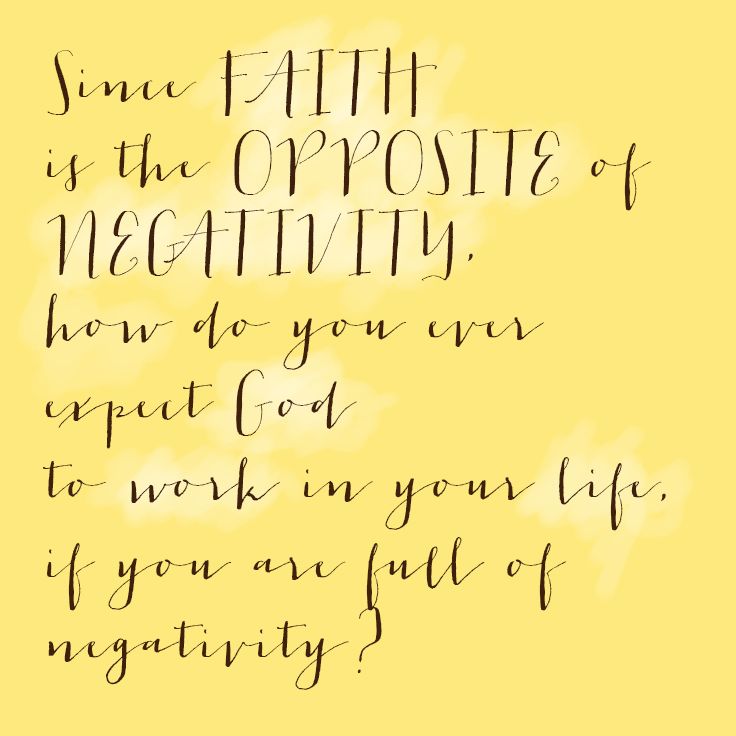 Since FAITH
is the OPPOSITE of
NEGATIVITY,
how do you ever
expect God
to work in your life,
if you are full of
negativity?